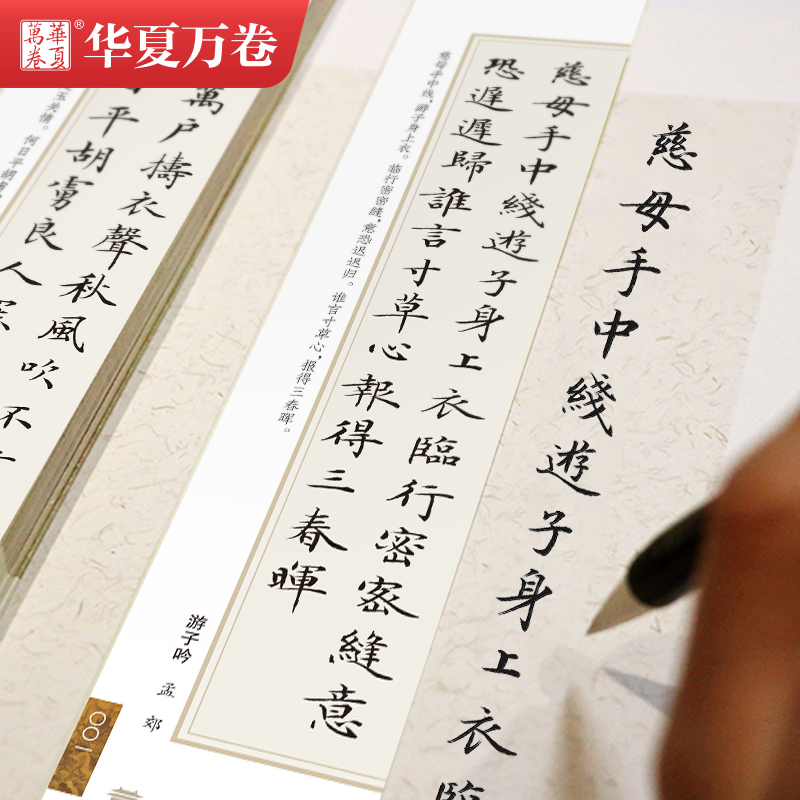 華夏萬卷®
华夏万卷
慈母手中綫遊子身上衣臨
慈母手中綫遊子身上衣臨行密密縫意
恐遲遲歸誰言寸草心報得三春暉
慈母手中线，游子身上衣。临行密密缝，意恐迟迟归。谁言寸草心，报得三春晖。
游子吟 孟郊
〇〇一
萬户擣衣聲秋風吹不
平胡虜良人
玉关情。何日平胡虏，